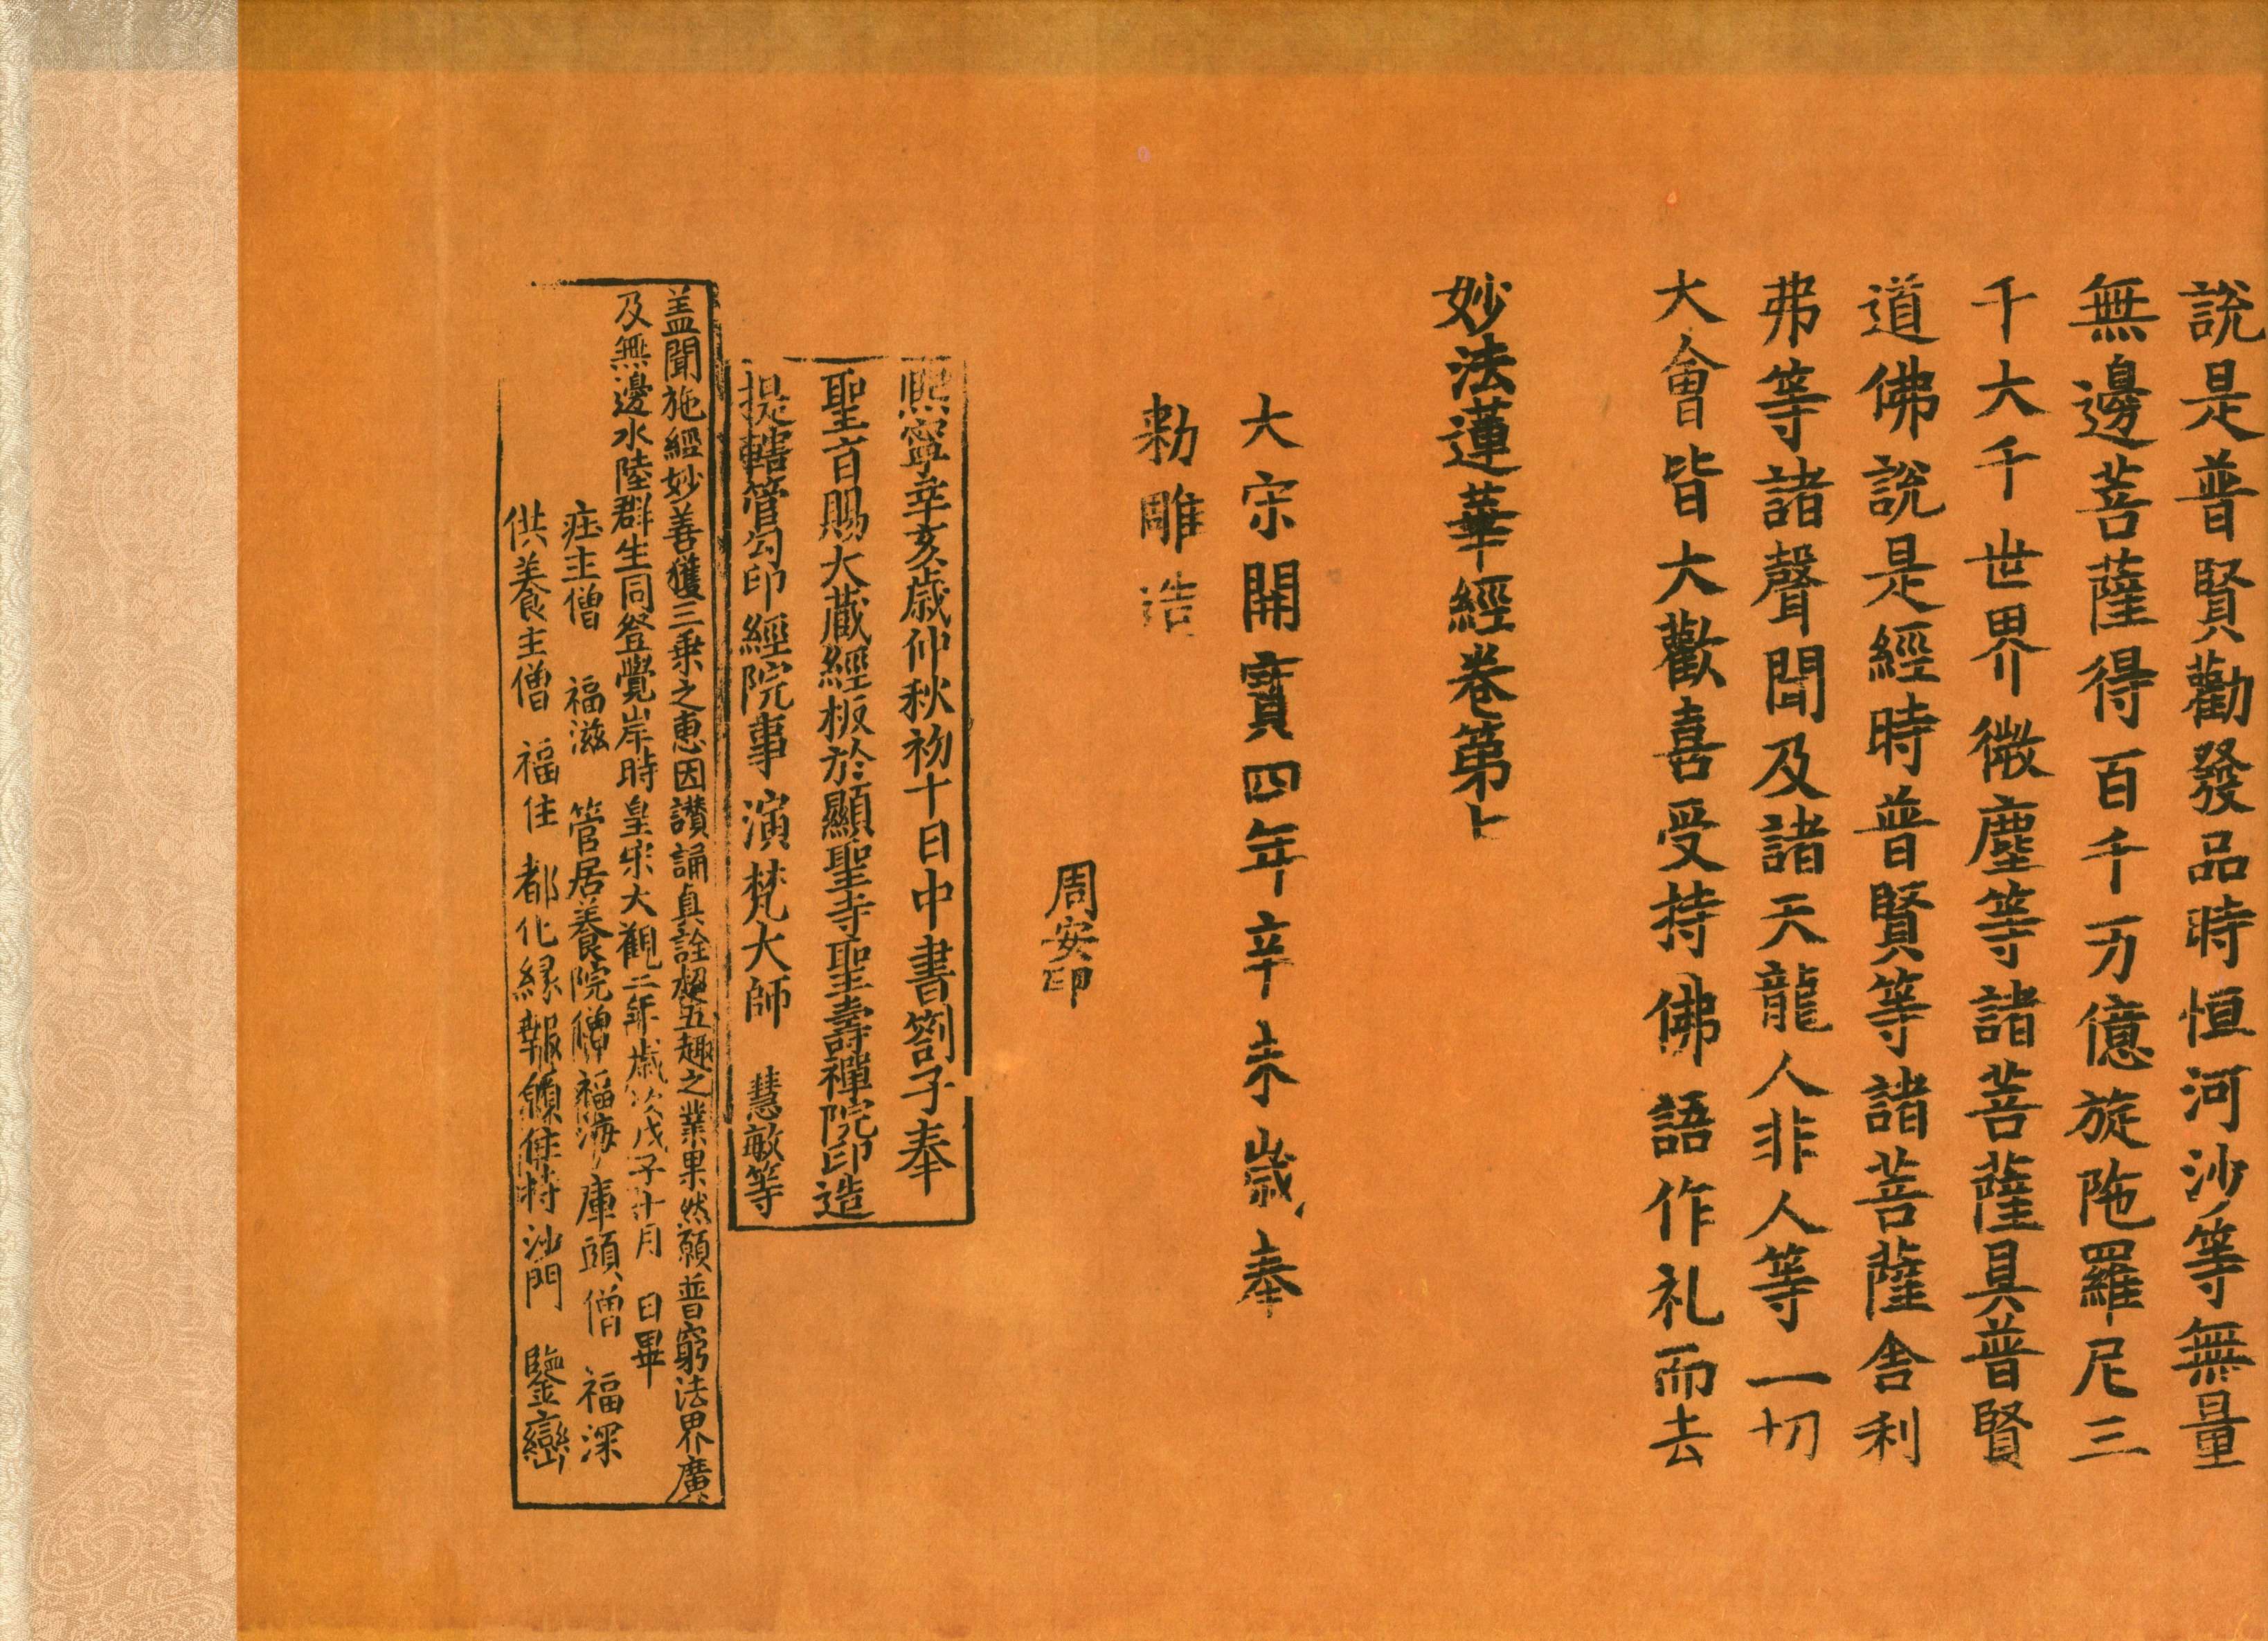 說是普賢勸發品時恒河沙等無量
無邊菩薩得百千万億旋陁羅尼三
千大千世界微塵等諸菩薩具普賢
道佛說是經時普賢等諸菩薩舍利
弗等諸聲聞及諸天龍人非人等一切
大會皆大歡喜受持佛語作礼而去
妙法蓮華經卷第七
大宋開寶四年辛未歲奉
勑雕造
周安印
熈寧辛亥歳仲秋初十日中書劄子奉
聖旨賜大藏經板於顯聖寺聖壽禪院印造
提轄管勾印經院事 演梵大師 慧敏等
盖聞施經妙善獲三乗之惠因讃誦真詮超五趣之業果然願普窮法界廣
及無邊水陸群生同登覺岸時皇宋大觀二年歲次戊子十月 日畢
庄主僧 福滋 管居養院僧 福海 庫頭僧 福深
供養主僧 福住 都化縁報願住持沙門 鑒巒